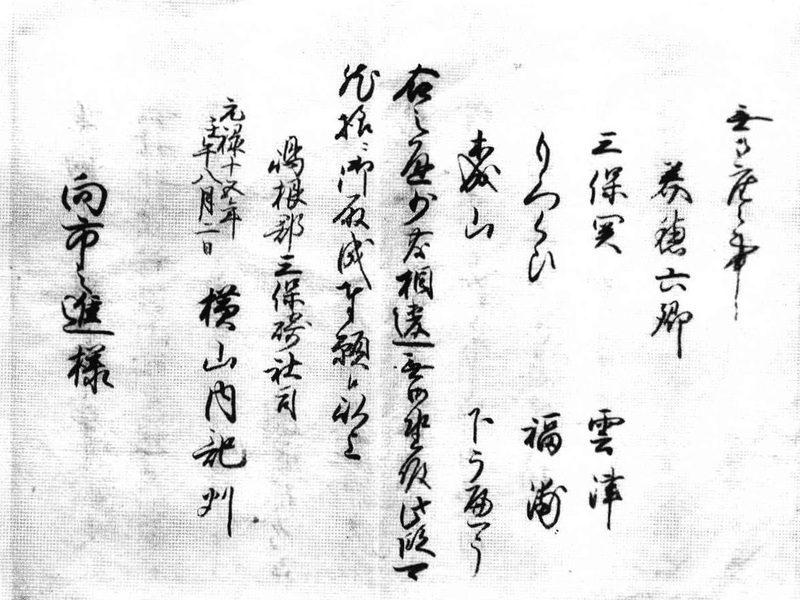 無御座候事
美穂六郷
三保関　雲津
もろくひ　福浦
森山　下うへう
右之通少茂相違無御座候此段可
然様ニ御取成奉願候以上
嶋根郡三保崎社司
元禄十五年
壬午八月二日　横山内記判
向市之進様